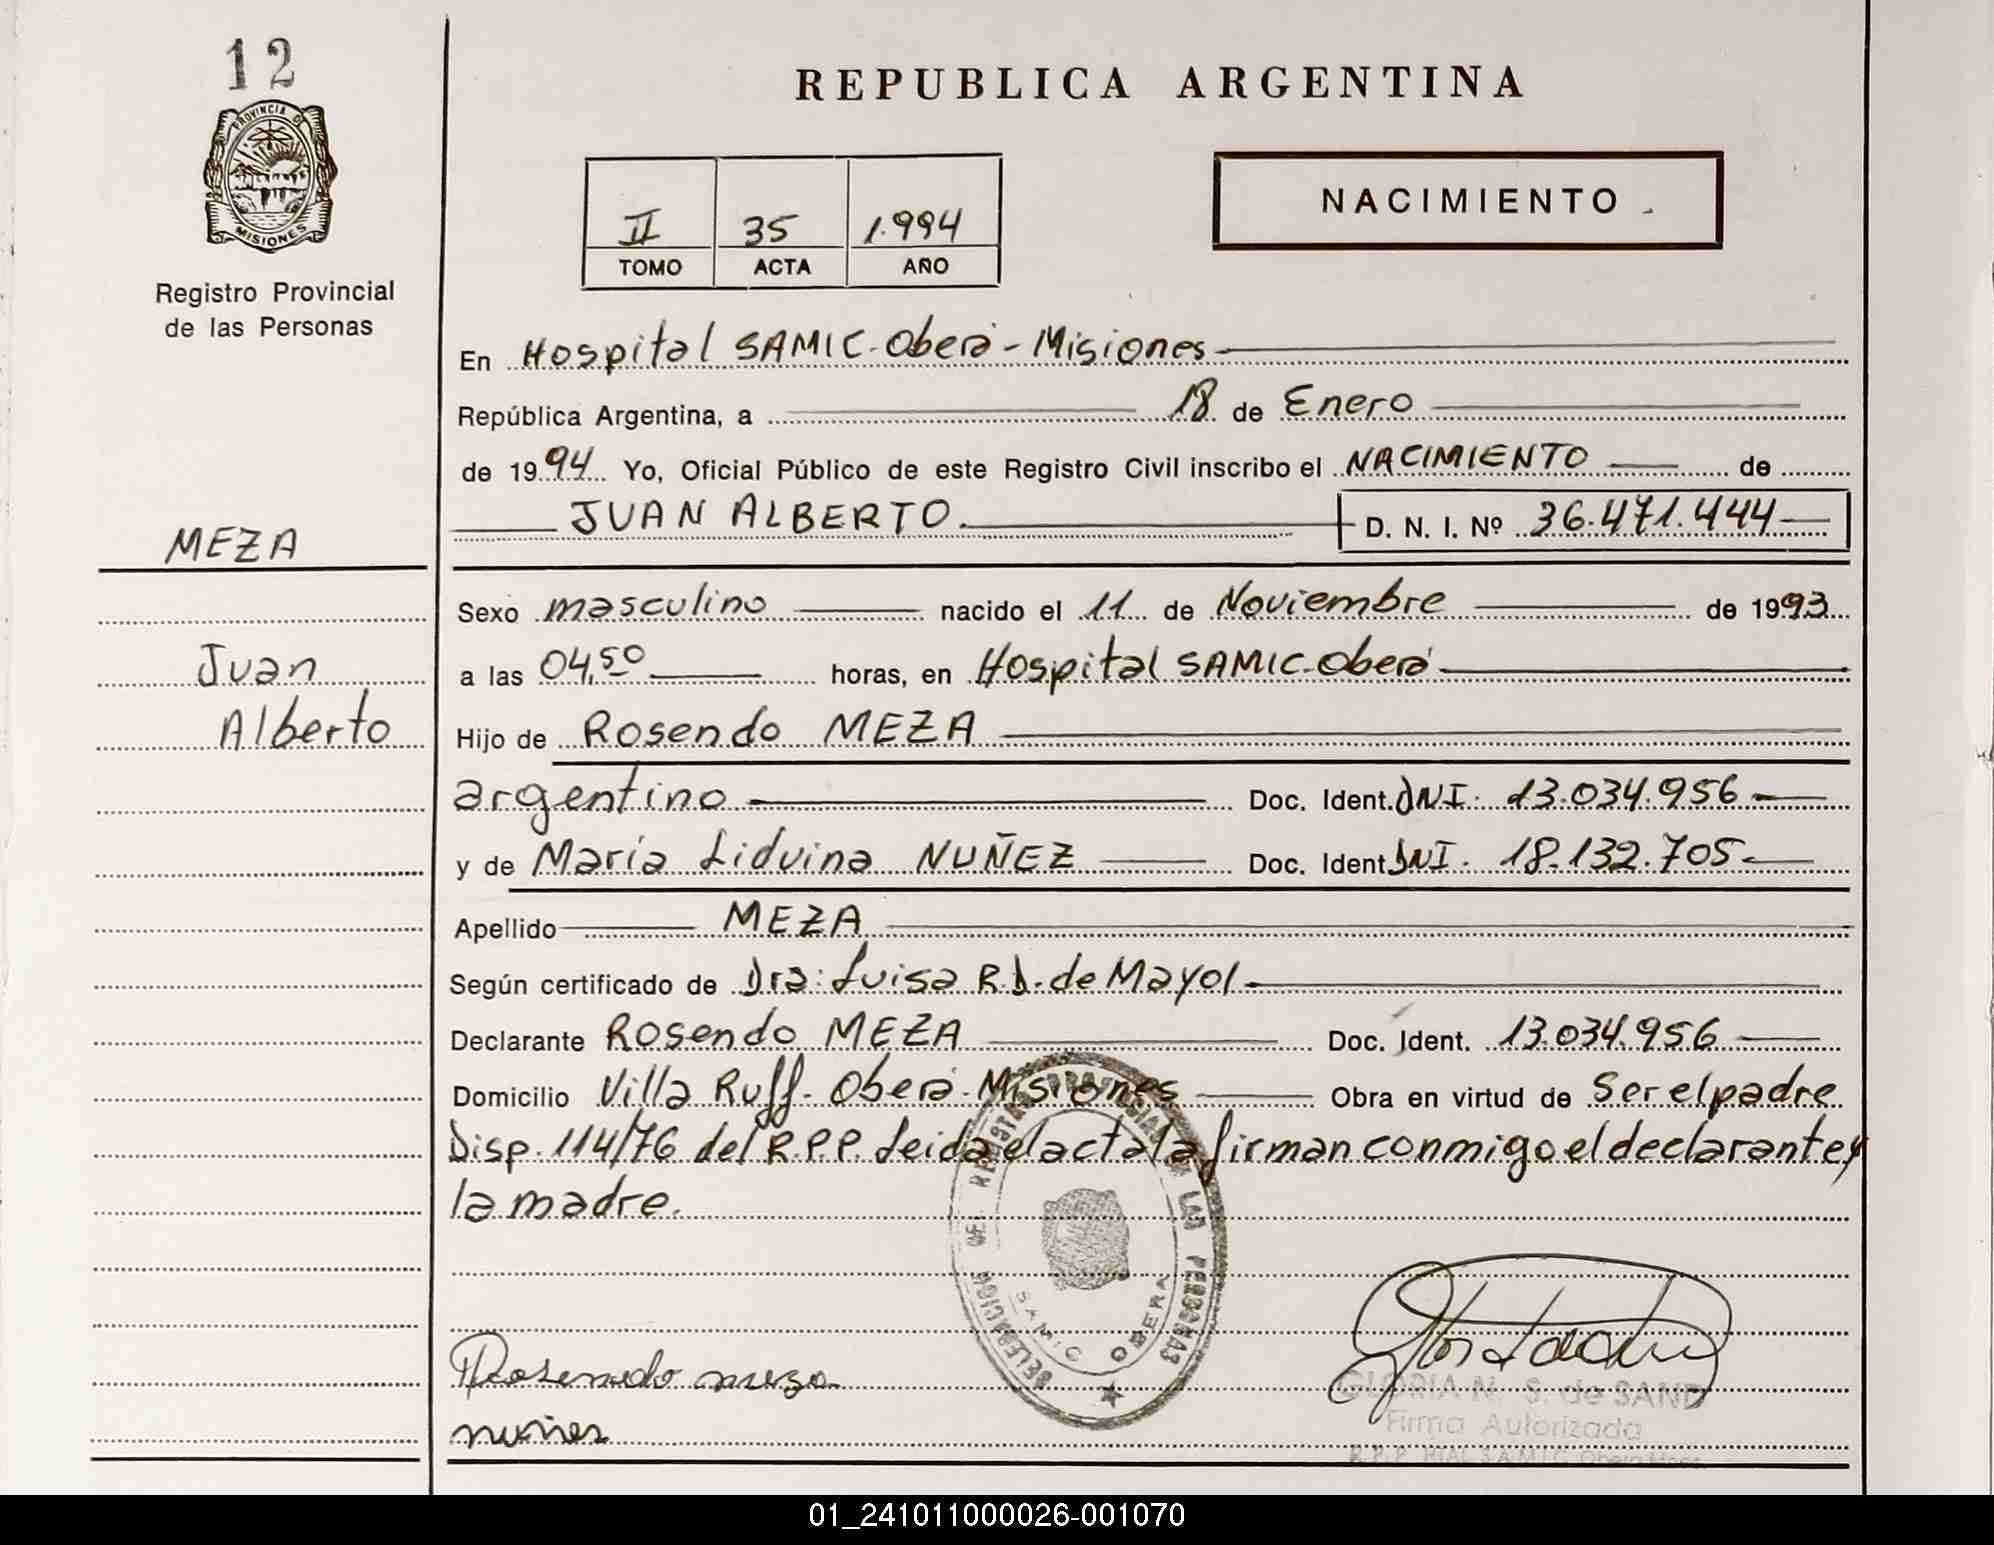 12
PROVINCIA DE
MISIONES
Registro Provincial
de las Personas
MEZA
Juan
Alberto
REPUBLICA ARGENTINA
II 35 1.994
TOMO ACTA AÑO
NACIMIENTO
En Hospital SAMIC-Oberá-Misiones
República Argentina, a 18 de Enero
de 1994 Yo, Oficial Público de este Registro Civil inscribo el NACIMIENTO de
JUAN ALBERTO. D. N. I. Nº 36.471.444
Sexo masculino nacido el 11 de Noviembre de 1993
a las 04,50 horas, en Hospital SAMIC-Oberá
Hijo de Rosendo MEZA
argentino Doc. Ident. DNI. 13.034.956
y de María Liduina NUÑEZ Doc. Ident. DNI. 18.132.705
Apellido MEZA
Según certificado de Dra: Luisa R.D. de Mayol
Declarante Rosendo MEZA Doc. Ident. 13.034.956
Domicilio Villa Ruff-Oberá-Misiones Obra en virtud de Ser el padre
Disp. 114/76 del R.P.P. Leida el acta la firman conmigo el declarante y
la madre.
DELEGACION DE REGISTRO PROVINCIAL DE LAS PERSONAS
SAMIC OBERA
Rosenedo meza
nuñez
GLORIA N. S. de SAND
Firma Autorizada
01_241011000026-001070